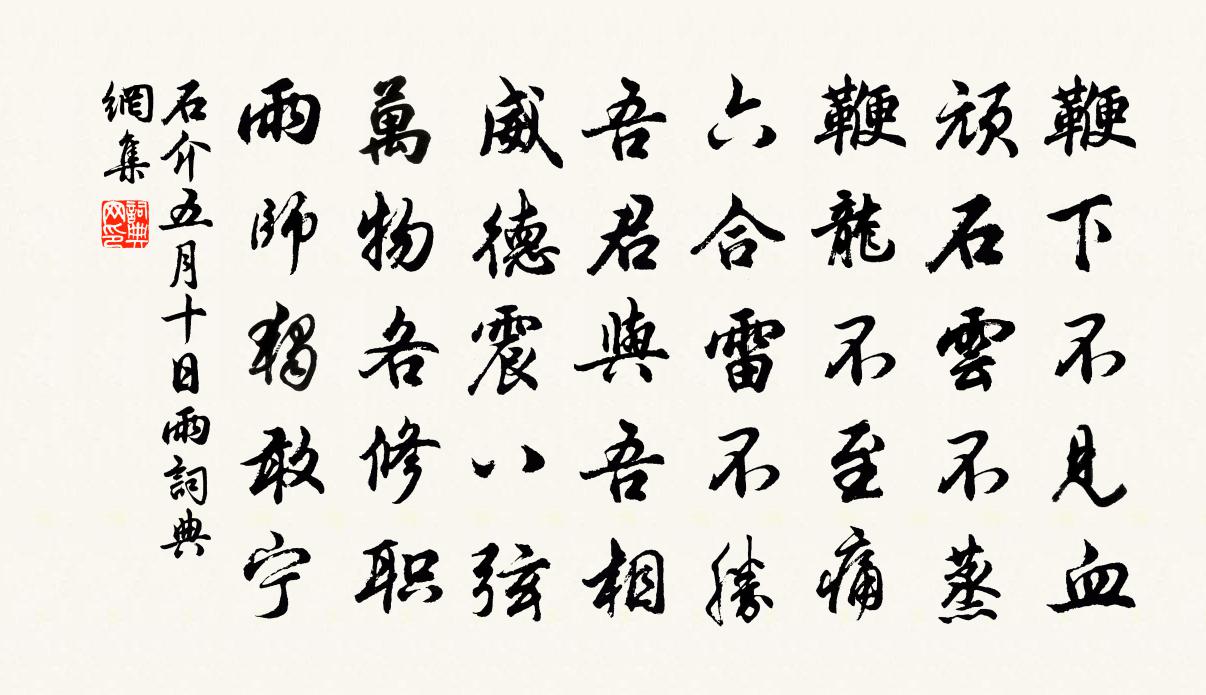 鞭下不見血
頑石雲不蒸
鞭龍不至痛
六合雷不勝
吾君與吾相
威德震八弦
萬物各修职
雨師獨敢宁
石介五月十日雨詞典
網集
詞典網印